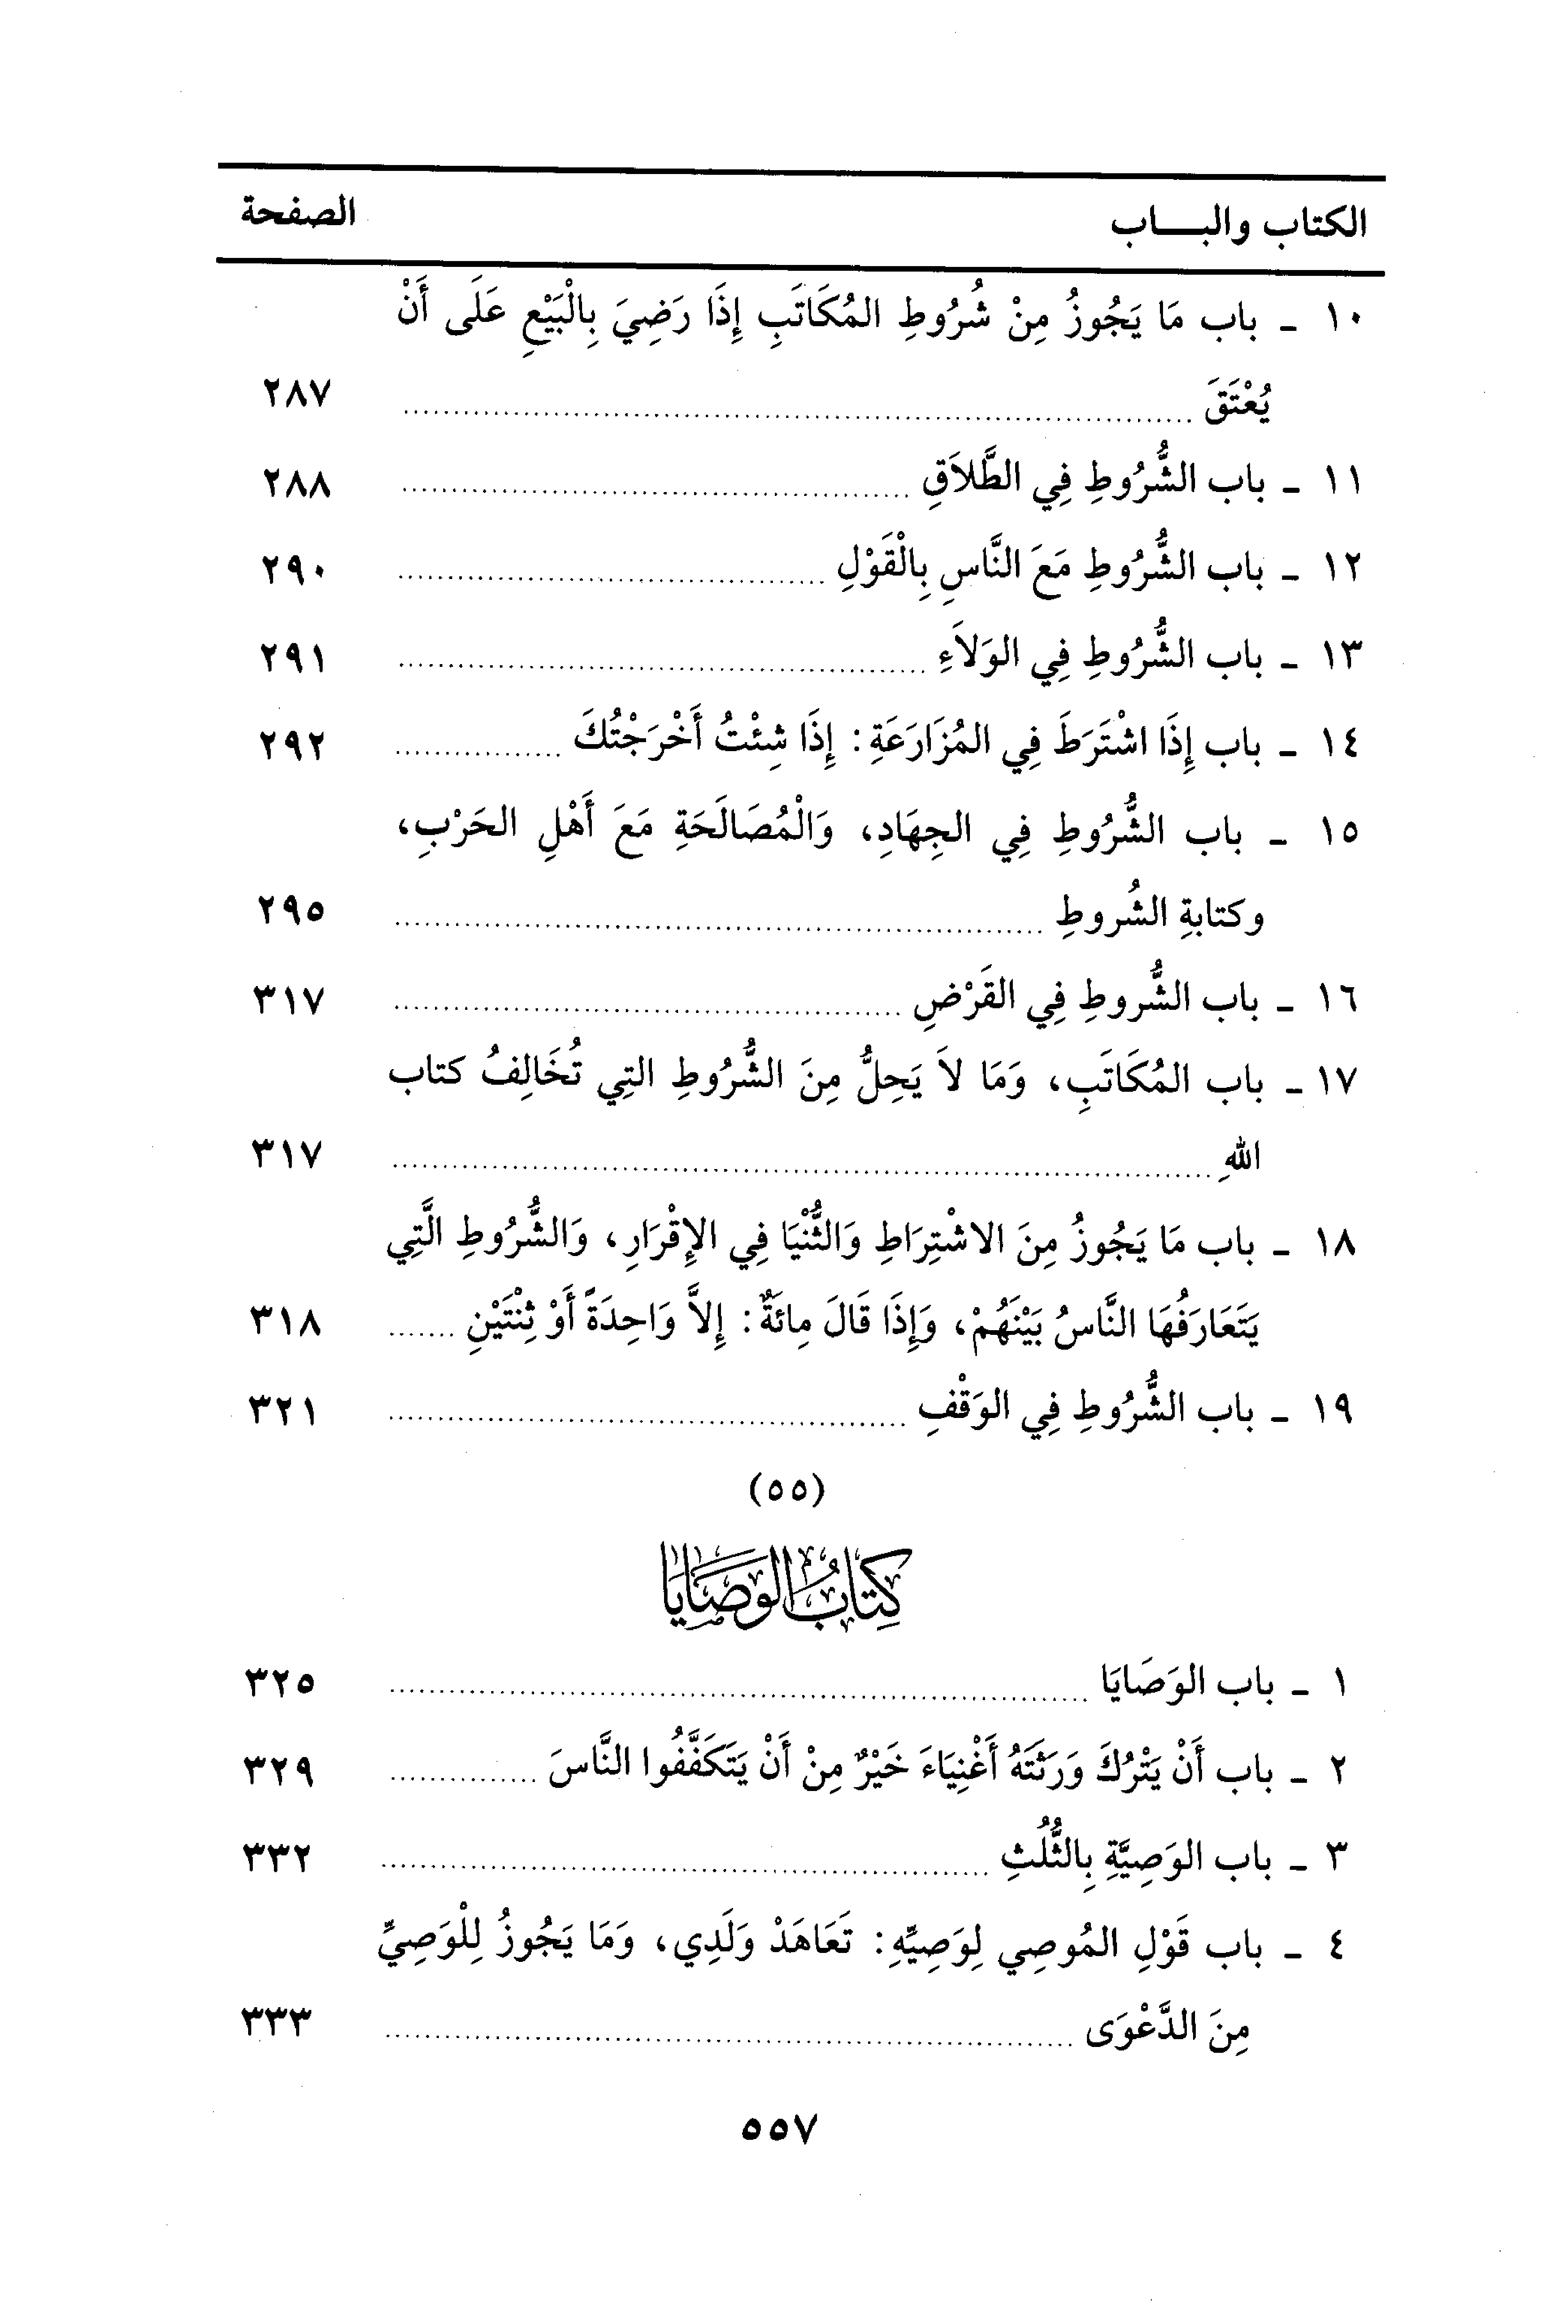 الكتاب والبـــاب الصفحة
١٠ ـ باب مَا يَجُوزُ مِنْ شُرُوطِ المُكَاتَبِ إِذَا رَضِيَ بِالْبَيْعِ عَلَى أَنْ
يُعْتَقَ ........ ٢٨٧
١١ ـ باب الشُّرُوطِ فِي الطَّلاَقِ ........ ٢٨٨
١٢ ـ باب الشُّرُوطِ مَعَ النَّاسِ بِالْقَوْلِ ........ ٢٩٠
١٣ ـ باب الشُّرُوطِ فِي الوَلاَءِ ........ ٢٩١
١٤ ـ باب إِذَا اشْتَرَطَ فِي المُزَارَعَةِ: إِذَا شِئْتُ أَخْرَجْتُكَ ........ ٢٩٢
١٥ ـ باب الشُّرُوطِ فِي الجِهَادِ، وَالْمُصَالَحَةِ مَعَ أَهْلِ الحَرْبِ،
وكتابةِ الشُروطِ ........ ٢٩٥
١٦ ـ باب الشُّروطِ فِي القَرْضِ ........ ٣١٧
١٧ ـ باب المُكَاتَبِ، وَمَا لاَ يَحِلُّ مِنَ الشُّرُوطِ التِي تُخَالِفُ كتاب
اللهِ ........ ٣١٧
١٨ ـ باب مَا يَجُوزُ مِنَ الاشْتِرَاطِ وَالثُّنْيَا فِي الإِقْرَارِ، وَالشُّرُوطِ الَّتِي
يَتَعَارَفُهَا النَّاسُ بَيْنَهُمْ، وَإِذَا قَالَ مِائَةٌ: إِلاَّ وَاحِدَةً أَوْ ثِنْتَيْنِ ........ ٣١٨
١٩ ـ باب الشُّرُوطِ فِي الوَقْفِ ........ ٣٢١
(٥٥)
كِتَابُ الوَصَايَا
١ ـ باب الوَصَايَا ........ ٣٢٥
٢ ـ باب أَنْ يَتْرُكَ وَرَثَتَهُ أَغْنِيَاءَ خَيْرٌ مِنْ أَنْ يَتَكَفَّفُوا النَّاسَ ........ ٣٢٩
٣ ـ باب الوَصِيَّةِ بِالثُّلُثِ ........ ٣٣٢
٤ ـ باب قَوْلِ المُوصِي لِوَصِيِّهِ: تَعَاهَدْ وَلَدِي، وَمَا يَجُوزُ لِلْوَصِيِّ
مِنَ الدَّعْوَى ........ ٣٣٣
٥٥٧